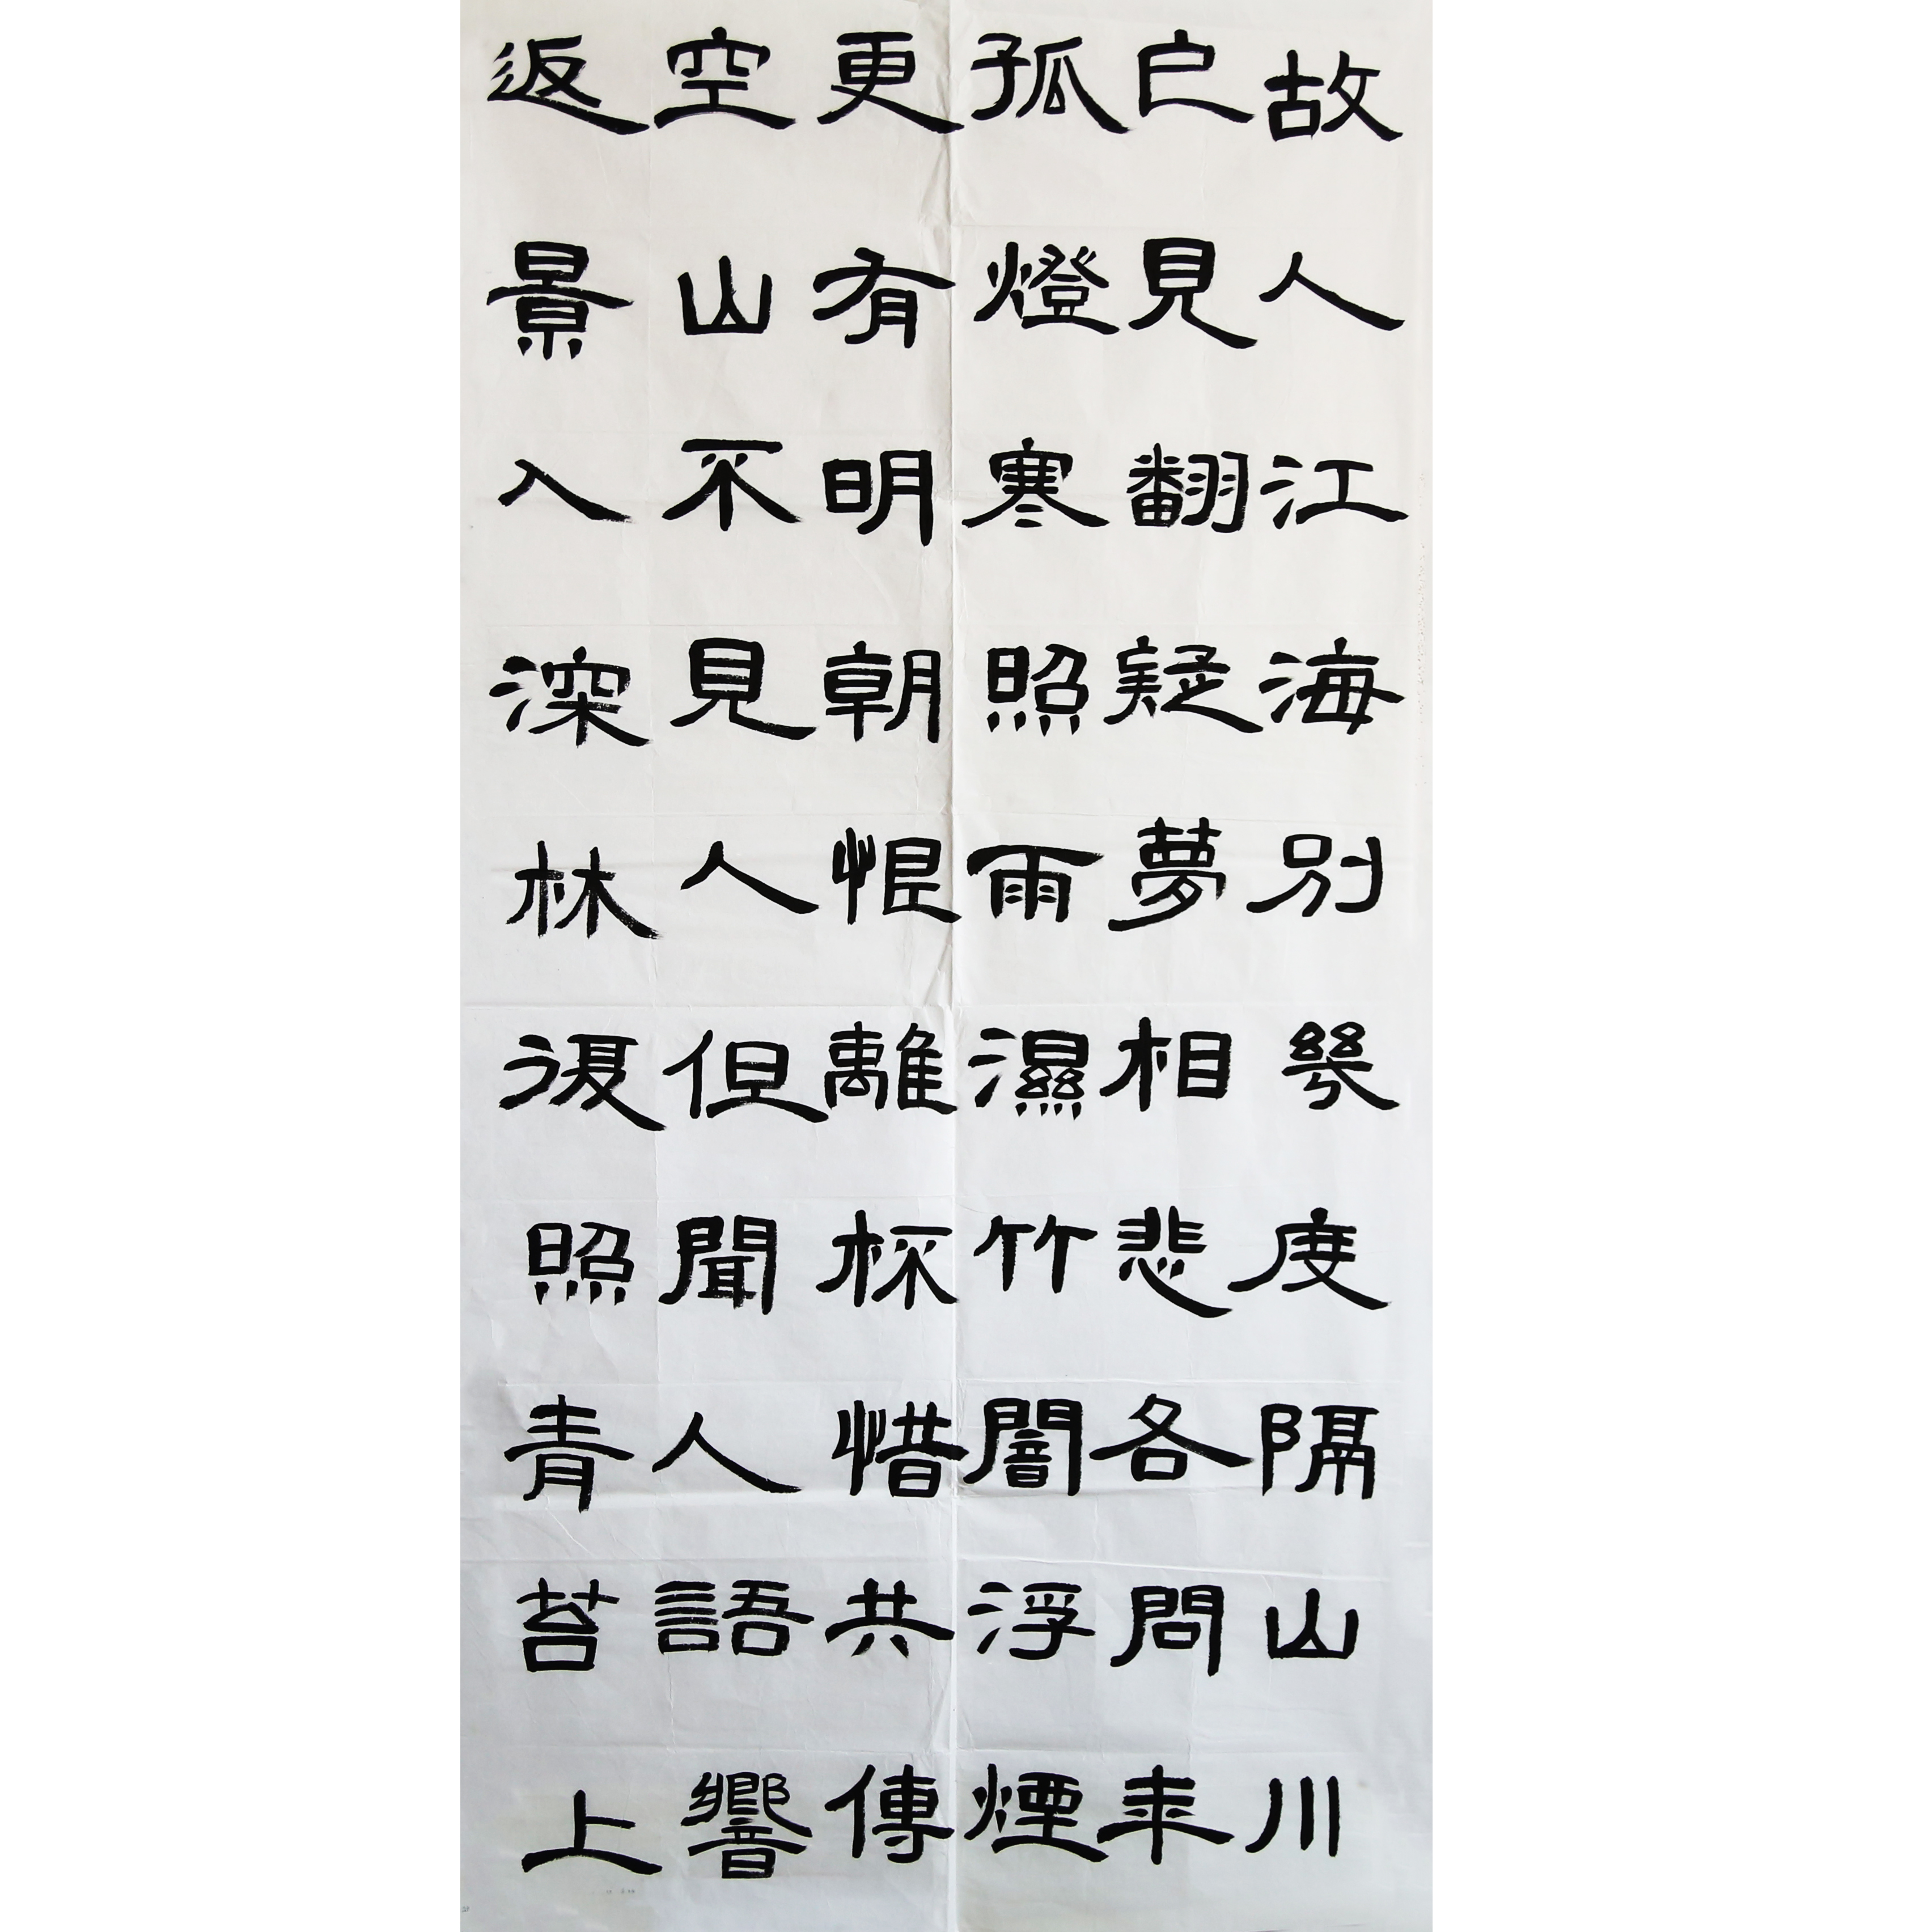 故人江海別幾度隔山川
乍見翻疑夢相悲各問年
孤燈寒照雨濕竹闇浮煙
更有明朝恨離杯惜共傳
空山不見人但聞人語響
返景入深林復照青苔上